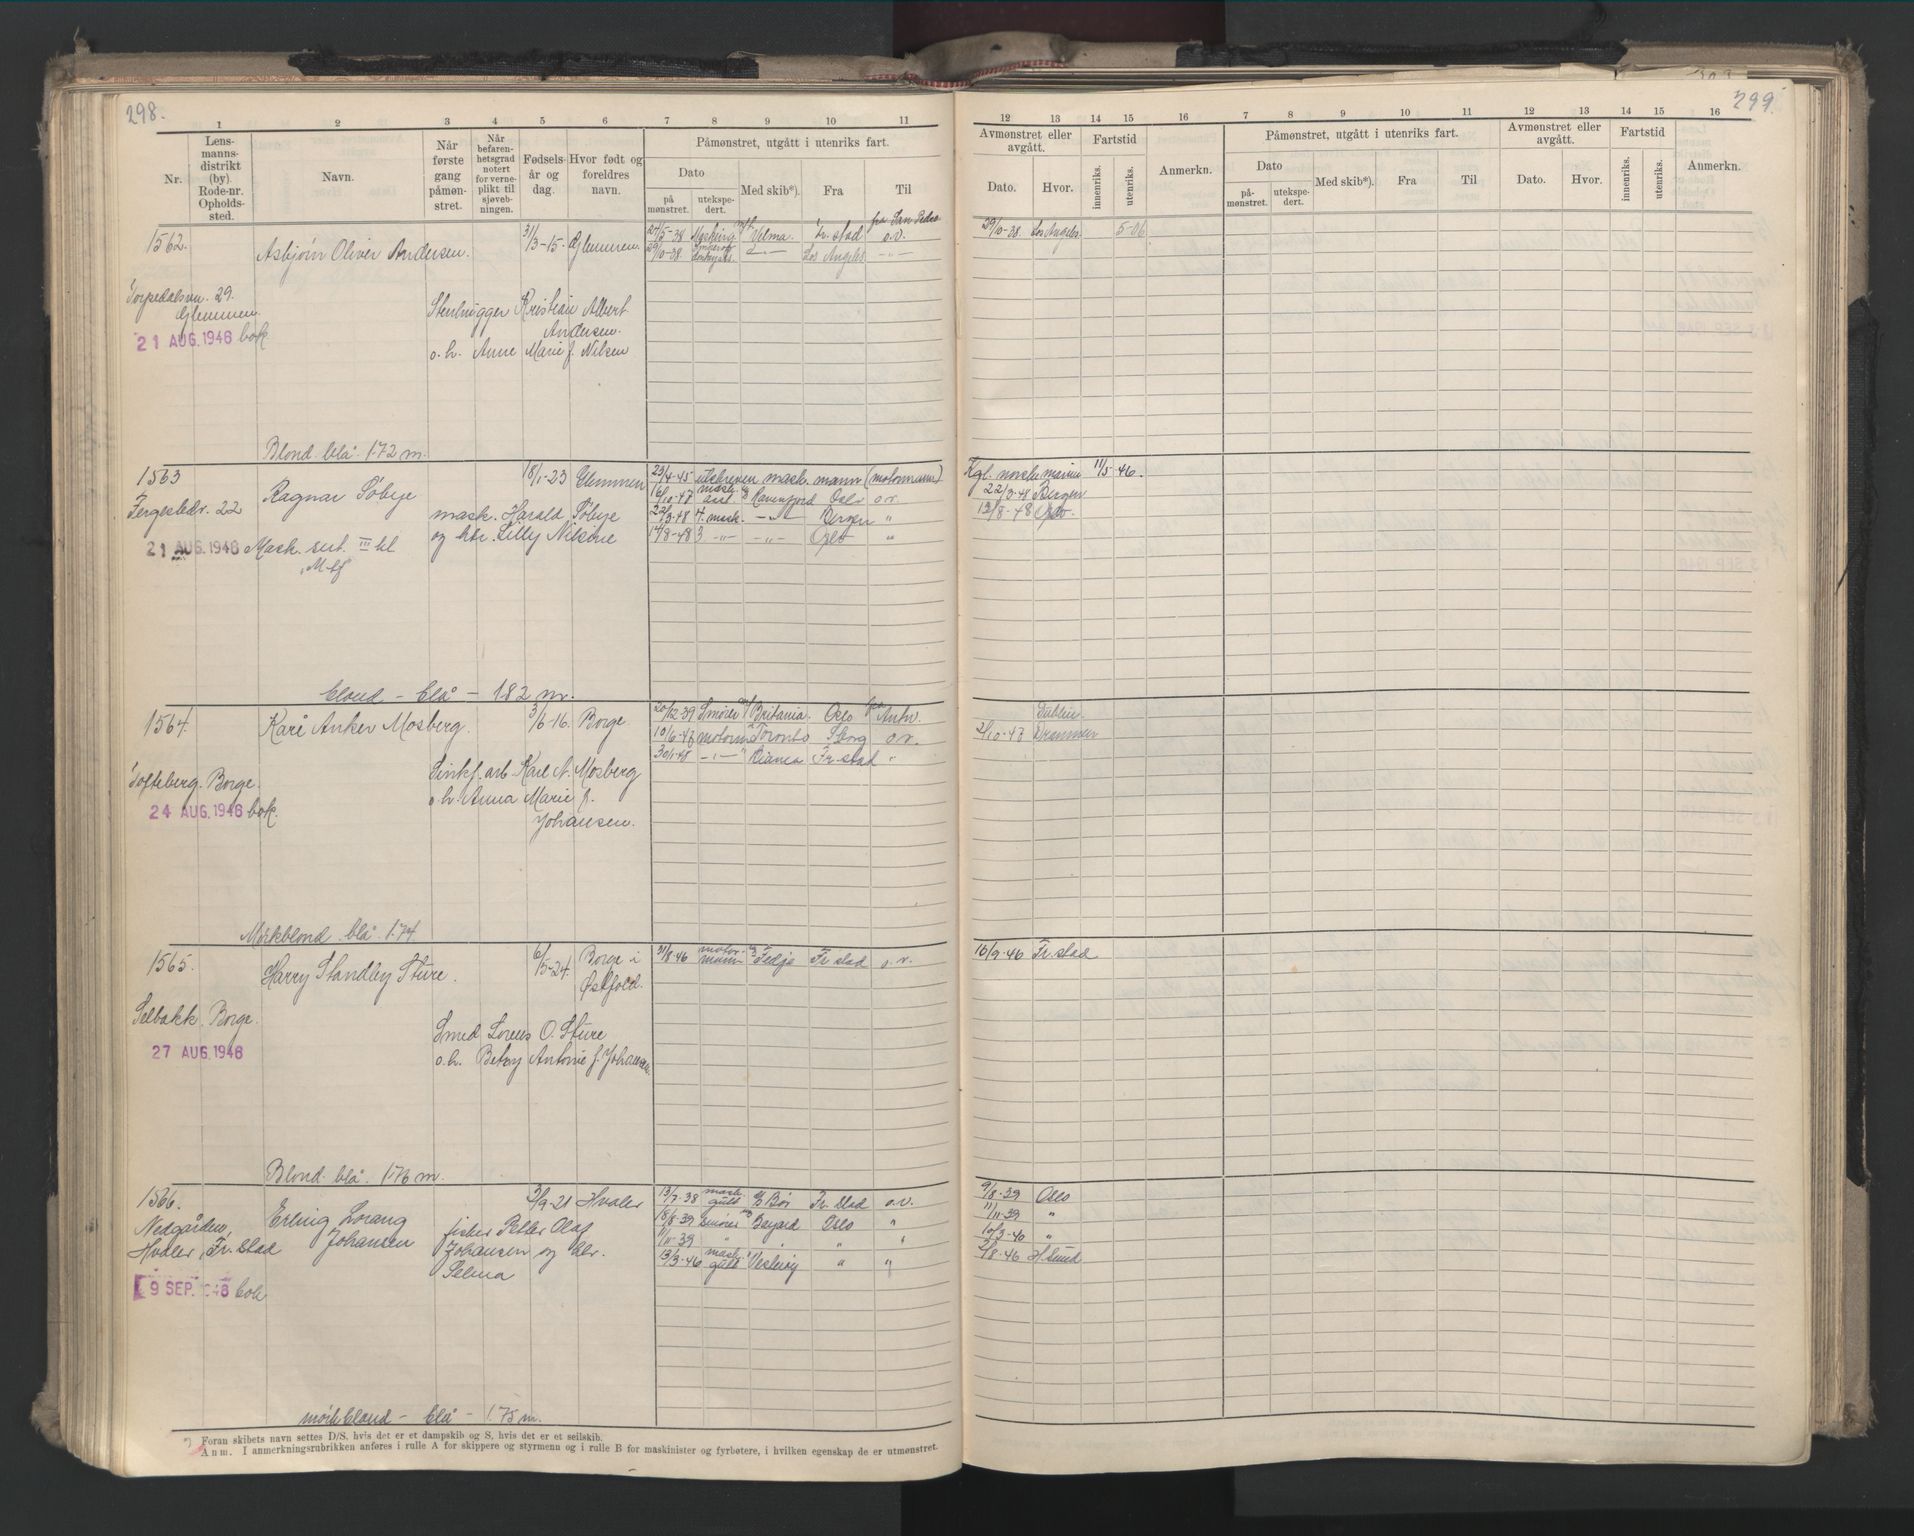 298.
299.
1 2 3 4 5 6 7 8 9 10 11
12 13 14 15 16 7 8 9 10 11 12 13 14 15 16
Nr.
Lens-
manns-
distrikt
(by).
Rode-nr.
Opholds-
sted.
Navn.
Når
første
gang
påmøn-
stret.
Når
befaren-
hetsgrad
notert
for verne-
plikt til
sjøveb-
ningen.
Fødsels-
år og
dag.
Hvor født og
foreldres
navn.
Påmønstret, utgått i utenriks fart.
Dato
på
mønstret.
utekspe-
dert.
Med skib*).
Fra
Til
Avmønstret eller
avgått.
Dato.
Hvor.
Fartstid
innenriks.
utenriks.
Anmerkn.
Påmønstret, utgått i utenriks fart.
Dato
på-
mønstret.
utekspe-
dert.
Med skib*).
Fra
Til
Avmønstret eller
avgått.
Dato.
Hvor.
Fartstid
innenriks.
utenriks.
Anmerkn.
1562.
Asbjørn Oliver Andersen.
31/3-15. Glemmen.
27/5-38 m/t. Velma. Fr. stad fra San Pedro o.v.
29/10-38. —„— Los Angeles —„—
29/10-38. Los Angeles. 5-06.
Torpedalsvn. 29.
Glemmen.
21 AUG. 1946 bok
Stenhugger Kristian Albert
Andersen.
o. h. Anne Marie f. Nilsen
Blond. blå. 1.72 m.
1563
Fergestedv. 22
Ragnar Søbye
18/1-23 Glemmen
23/4-45 utskreven mask. mann (motormann)
16/10-47 mask. ass. Ravnfjord Oslo o.v.
22/3-48 4. mask. —„— Bergen „
14/8-48 3 —„— —„— Oslo „
Kgl. norske marine 11/5-46.
22/3-48 Bergen
13/8-48 Oslo.
21 AUG. 1946 Mask. sert. III kl
mask. Harald Søbye
og htr. Lilly Nilsine
blond — blå — 1.82 m.
1564.
Kåre Anker Mosberg.
3/6-16. Borge
20/12-39 Smører m/ Britania. Oslo fra Antv.
10/6-47 motorm „ Toronto Sborg o.v.
30/1-48 —„— „ Bianca Fr. stad „
Dublin.
2/10-47 Drammen
Tofteberg. Borge.
24 AUG. 1946 bok.
Sinkf. arb Karl A. Mosberg
o. h. Anna Marie f.
Johansen.
Mørkblond. blå. 1.74.
1565.
Harry Standley Sture.
6/5-24. Borge i
Østfold.
31/8-46 motor-
mann Fedje Fr stad o.v.
10/9-46 Fr. stad
Selbakk. Borge.
27 AUG. 1946
Smed Lorens O. Sture
o. h. Betzy Antonie f. Johansen.
Blond. blå. 1.76 m.
1566.
Nedgården,
Hvaler, Fr. stad
Erling Lorang
Johansen
3/9-21 Hvaler
fisker Petter Olaf
Johansen og htr.
Selma
13/7-38 mask.
gutt Bøi Fr. stad o.v.
18/8-39 smører Bayard Oslo „
11/11-39 „ „ „ „
13/3-46 mask.
gutt Vesterøy „ „
9/8-39 Oslo
11/11-39 „
10/3-40 „
2/8-46 H.sund
9 SEP. 1946 bok
mørkblond — blå — 1.75 m.
*) Foran skibets navn settes D/S, hvis det er et dampskib og S, hvis det er et seilskib.
Anm. I anmerkningsrubrikken anføres i rulle A for skippere og styrmenn og i rulle B for maskinister og fyrbøtere, i hvilken egenskap de er utmønstret.